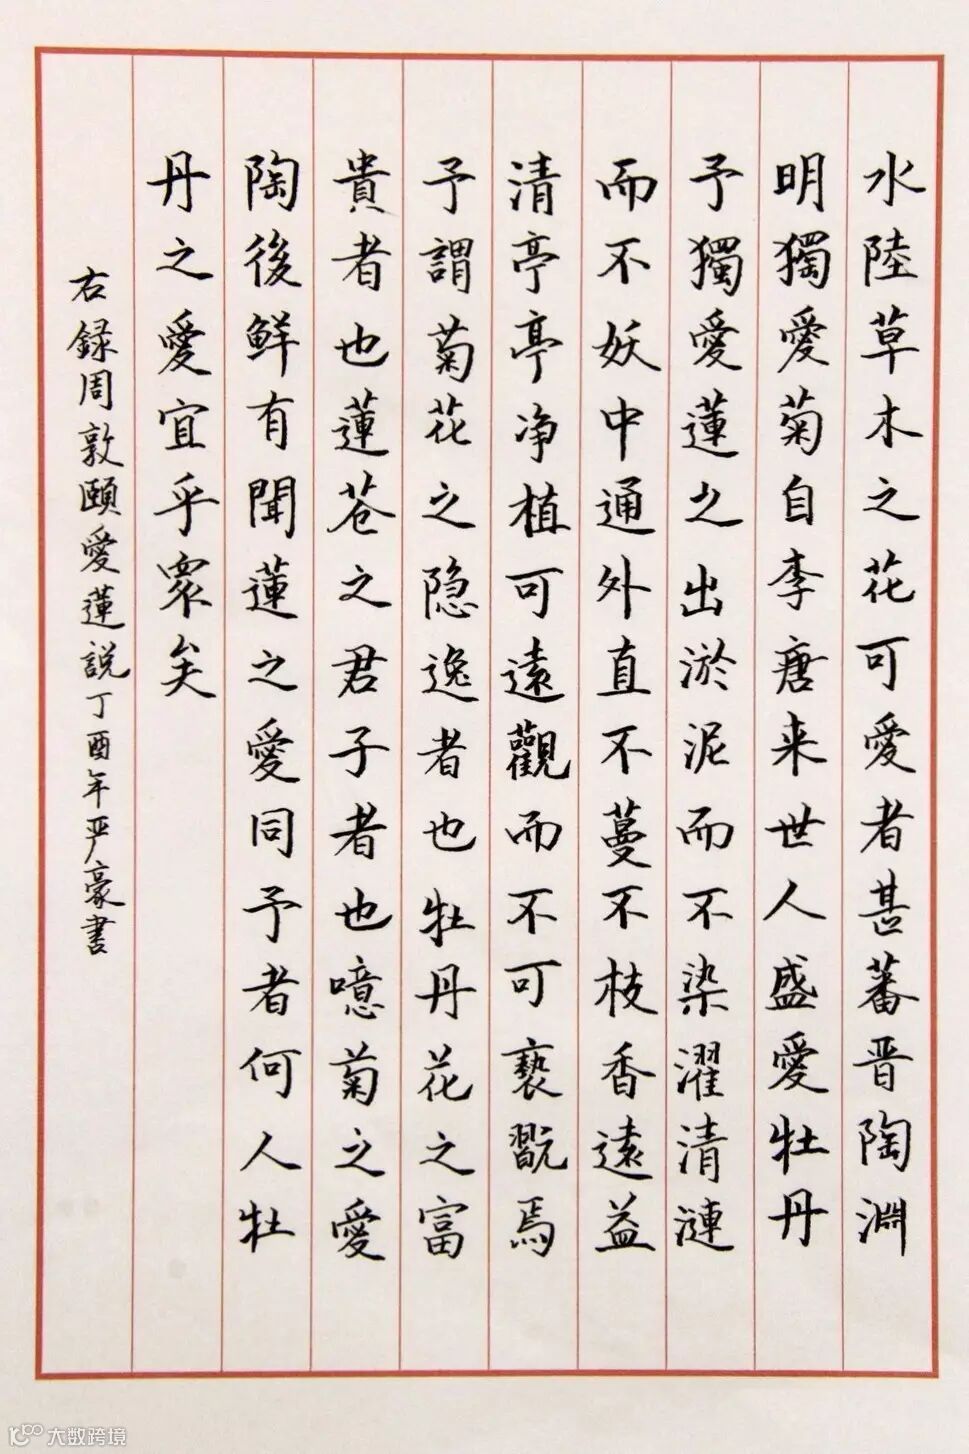 水陸草木之花可愛者甚蕃晋陶淵
明獨愛菊自李唐来世人盛愛牡丹
予獨愛蓮之出淤泥而不染濯清漣
而不妖中通外直不蔓不枝香遠益
清亭亭净植可遠觀而不可褻翫焉
予謂菊花之隐逸者也牡丹花之富
貴者也蓮苍之君子者也噫菊之愛
陶後鮮有聞蓮之愛同予者何人牡
丹之愛宜乎衆矣
右録周敦頤愛蓮說丁酉年严豪書
大数跨境